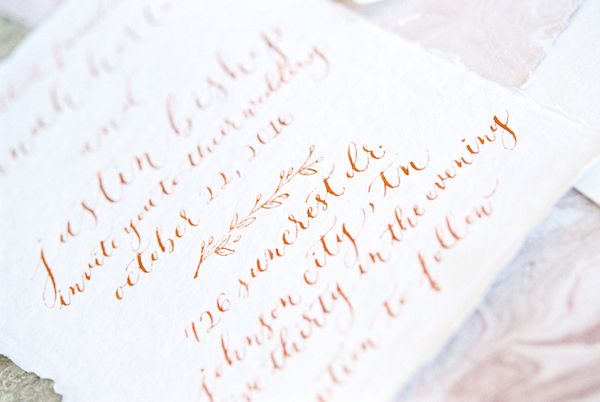 and
justin bishop
invite you to their wedding
october 22, 2016
726 suncrest dr.
johnson city, tn
thirty in the evening
to follow